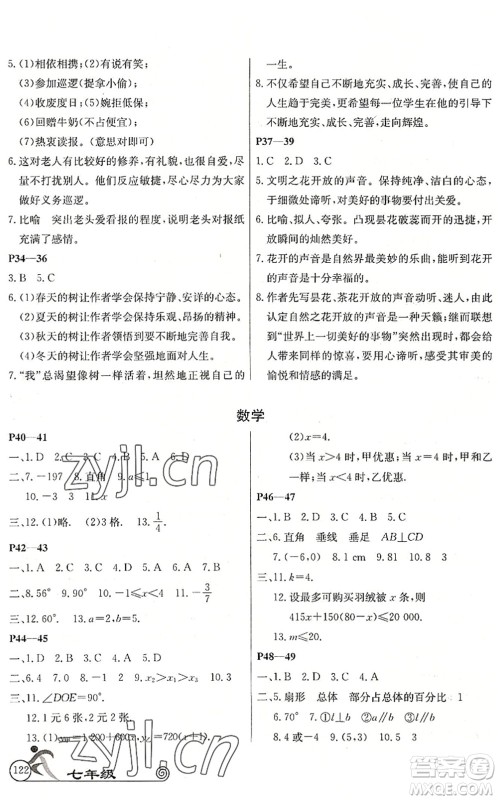 5. (1)相依相携；(2)有说有笑；
(3)参加巡逻(捉拿小偷)；
(4)收废度日；(5)婉拒低保；
(6)回赠牛奶(不占便宜)；
(7)热衷读报。(意思对即可)
6. 这对老人有比较好的修养，有礼貌，说话声音
不打扰别人。他们反应敏捷，能尽自己的力量
做好义务巡逻。
7. 比喻 突出老头爱看报的程度，说明老头对报纸
充满了感情。
P34—36
3. B 5. C
6. (1)春天的树让作者学会保持宁静、安详的心态。
(2)夏天的树让作者学会保持乐观、昂扬的格调。
(3)秋天的树让作者领悟到要不断地完善自我。
(4)冬天的树让作者学会坚强地面对人生。
7. “我”总渴望像树一样活着，坦然地正视自己的
一生。
8. 不仅希望自己不断地充实、成长、完善，使自己的
人生趋于完美；而且希望每一位学生在他的引导
下不断地充实、成长、完善，走向辉煌。
P37—39
1. C 2. D 3. C
5. 文明之花开放的声音。保持纯净、洁白的心灵，
守候寂寞，去谛听，对美好的事物加以关注。
6. 比喻、拟人、夸张。凸现昙花破蕊而开的迅捷，开
放瞬间的灿烂与美好。
7. 花开的声音是自然界最美妙的乐曲。聆听花开
的声音是一种高尚的审美活动。
8. 作者先写昙花、茶花开放的声音动听，继而联想
到“世界上一切花开的声音都是一种天籁，都会
给人带来特别的惊喜，要用心谛听，获得其审美的
愉悦和情感的满足。
数学
P40—41
一、1. D 2. C 3. C 4. A 5. A 6. D
二、7. -197 8. 直角 9. a≤2
10. -3 11. x
三、12. (1)略. (2)3 格. 13. 1/4
P42—43
一、1. A 2. D 3. C 4. C 5. A 6. C 7. D
二、8. 56° 9. 90° 10. -1≤x<4 11. -3/7
三、12. 60°. 13. a=2,b=5.
P44—45
一、1. D 2. C 3. B 4. B 5. D 6. C
二、7. 7 8. 60° 9. x2>x1>x3 10. > 11. 3
三、12. ∠DOE=90°.
13. 1 元 6 张, 2 元 2 张.
14. (1)y甲=1 200+600x, y乙=720(x+1).
(2)x=4.
(3)当 x>4 时,甲优惠;当 x=4 时,甲和乙
一样;当 x<4 时,乙优惠.
P46—47
一、1. B 2. D 3. D 4. B 5. D
二、6. 直角 垂线 垂足 AB⊥CD
7. (-6,0) 8. 1 cm 9. 81 10. 5
三、11. k=4.
12. 设最多可以购买羽绒被 x 条,则
415x+150(80-x)≤20 000.
13. m≤20.
P48—49
一、1. B 2. D 3. B 4. D
二、5. 扇形 总体 部分占总体的百分比 1
6. 70° 7. (1)// (2)⊥ (3)//
8. 4或-4 9. 50 10. 8.5 3
zyjl.cn
122
七年级
答案圈